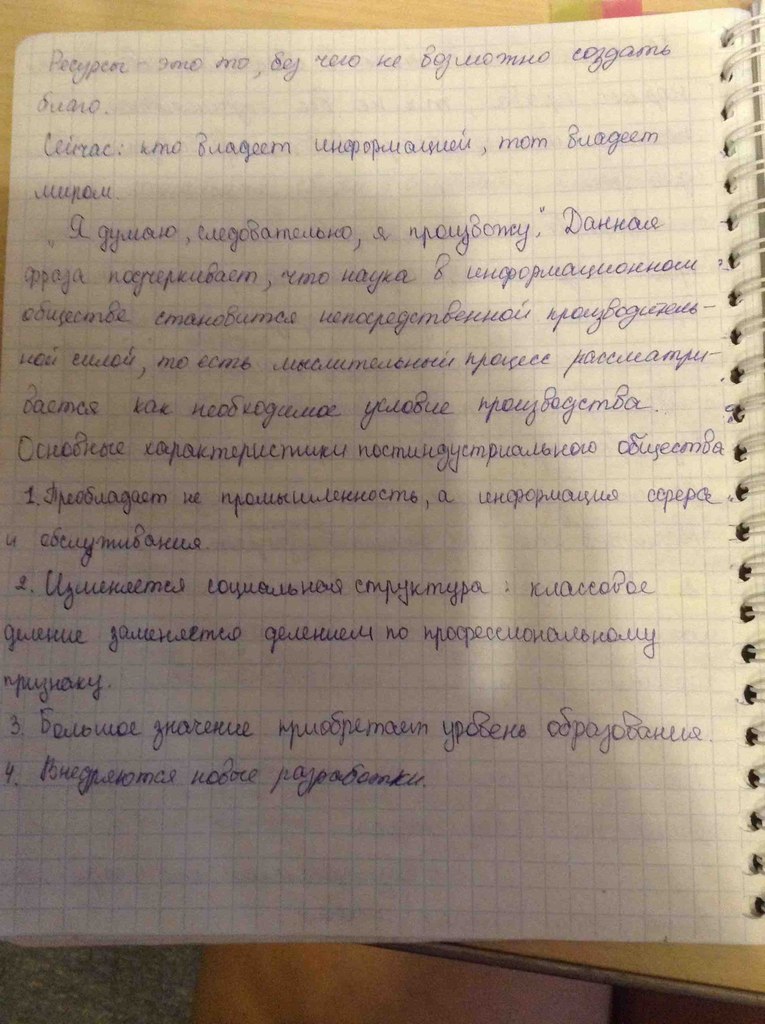 Ресурсы - это то, без чего не возможно создать
благо.
Сейчас: кто владеет информацией, тот владеет
миром.
„Я думаю, следовательно, я произвожу". Данная
фраза подчеркивает, что наука в информационном
обществе становится непосредственной производитель-
ной силой, то есть мыслительный процесс рассматри-
вается как необходимое условие производства.
Основные характеристики постиндустриального общества
1. Преобладает не промышленность, а информация сфера
и обслуживания.
2. Изменяется социальная структура : классовое
деление заменяется делением по профессиональному
признаку.
3. Большое значение приобретает уровень образования.
4. Внедряются новые разработки.